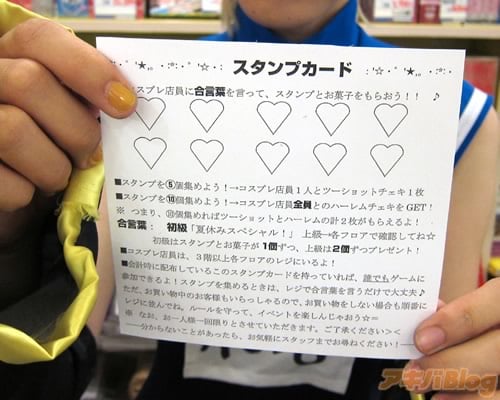 スタンプカード
スプレ店員に合言葉を言って、スタンプとお菓子をもらおう！！ ♪
■スタンプを⑤個集めよう！→コスプレ店員１人とツーショットチェキ１枚
■スタンプを⑩個集めよう！→コスプレ店員全員とのハーレムチェキをGET！
※ つまり、⑩個集めればツーショットとハーレムの計２枚がもらえるよ！
合言葉： 初級「夏休みスペシャル！」 上級→各フロアで確認してね☆
初級はスタンプとお菓子が1個ずつ、上級は2個ずつプレゼント！
■コスプレ店員は、３階以上各フロアのレジにいるよ！
■会計時に配布しているこのスタンプカードを持っていれば、誰でもゲームに
参加できるよ！スタンプを集めるときは、レジで合言葉を言うだけで大丈夫♪
ただ、お買い物中のお客様もいらっしゃるので、お買い物をしない場合も順番に
レジに並んでね。ルールを守って、イベントを楽しんじゃおう☆＝
※ なお、お一人様一回限りとさせていただきます。ご了承ください＞＜
――分からないことがあったら、お気軽にスタッフまでお尋ねください！――
アキバBlog